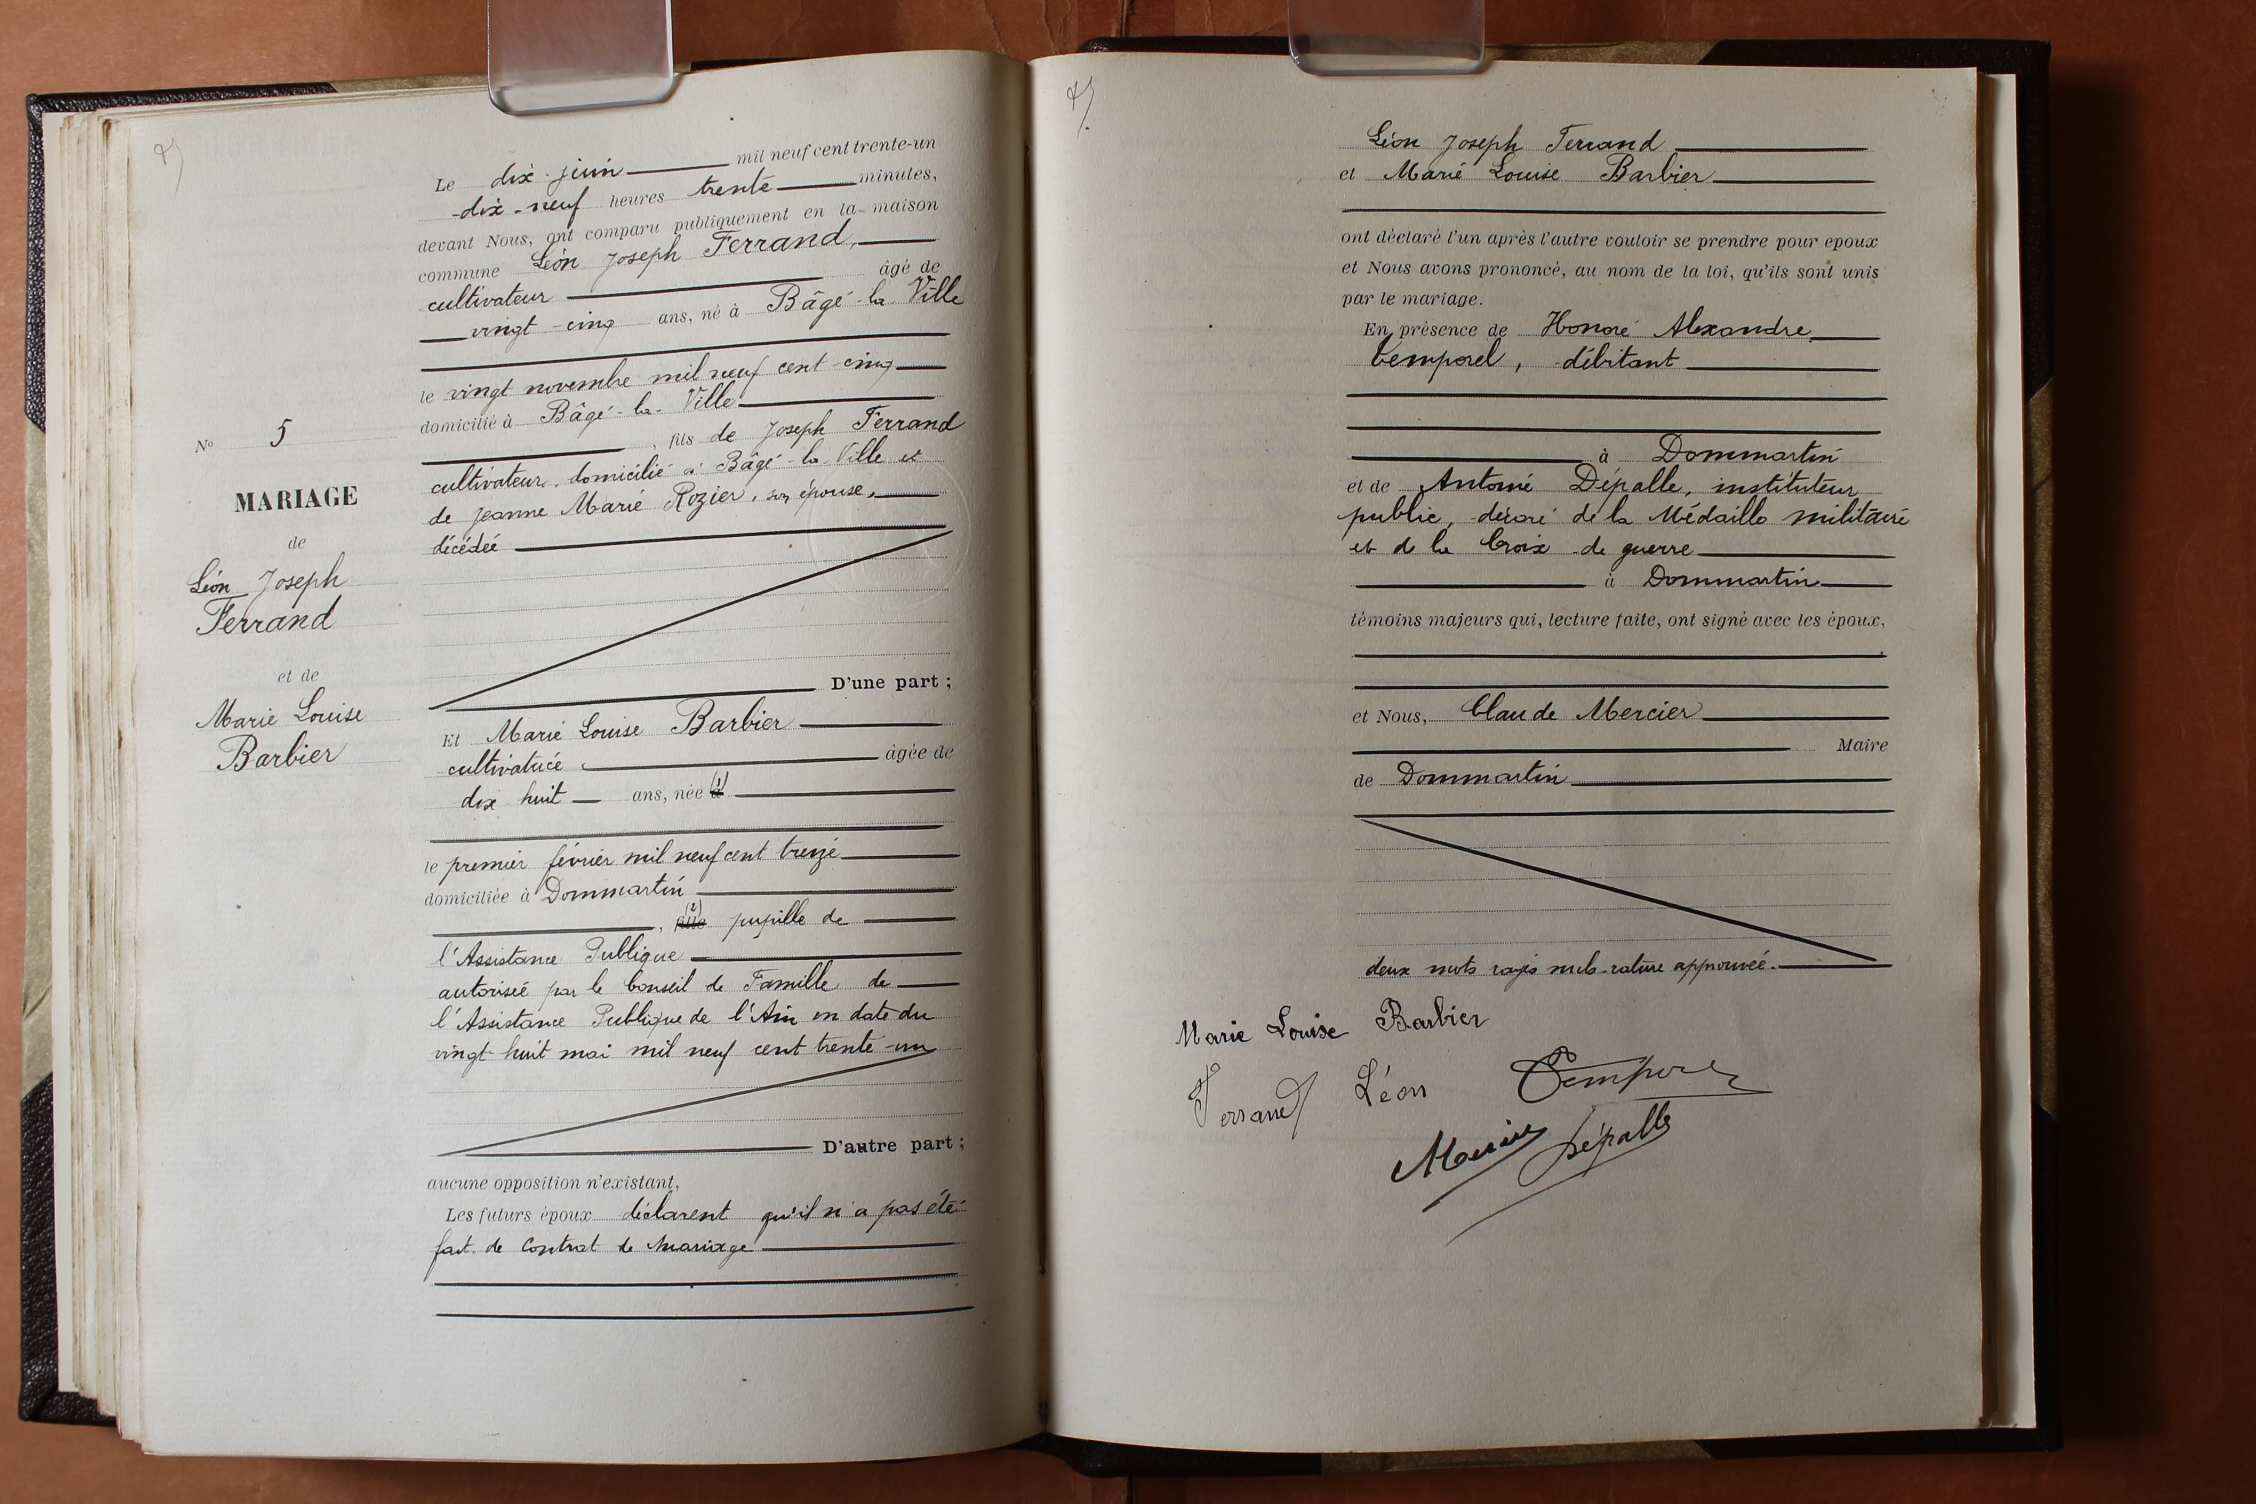 Le dix juin mil neuf cent trente-un
dix-neuf heures trente minutes,
devant Nous, ont comparu publiquement en la maison
commune Léon Joseph Ferrand,
cultivateur âgé de
vingt-cinq ans, né à Bâgé-la-Ville
le vingt novembre mil neuf cent cinq
domicilié à Bâgé-la-Ville
, fils de Joseph Ferrand
cultivateur, domicilié à Bâgé-la-Ville et
de Jeanne Marie Rozier, son épouse,
décédée
D'une part ;
Nº 5
MARIAGE
de
Léon Joseph
Ferrand
et de
Marie Louise
Barbier
Et Marie Louise Barbier
cultivatrice, âgée de
dix huit ans, née à (1)
le premier février mil neuf cent treize
domiciliée à Dommartin
, fille (2) pupille de
l'Assistance Publique
autorisée par le Conseil de Famille de
l'Assistance Publique de l'Ain en date du
vingt-huit mai mil neuf cent trente-un
D'autre part ;
aucune opposition n'existant,
Les futurs époux déclarent qu'il n'a pas été
fait de contrat de mariage
Léon Joseph Ferrand
et Marie Louise Barbier
ont déclaré l'un après l'autre vouloir se prendre pour epoux
et Nous avons prononcé, au nom de la loi, qu'ils sont unis
par le mariage.
En présence de Honoré Alexandre
Temporel, débitant
à Dommartin
et de Antoine Dépalle, instituteur
public, décoré de la Médaille militaire
et de la Croix de guerre
à Dommartin
témoins majeurs qui, lecture faite, ont signé avec les époux,
et Nous, Claude Mercier
Maire
de Dommartin
deux mots rayés nuls. rature approuvée.
Marie Louise Barbier
Ferrand Léon Temporel
Mercier Dépalle